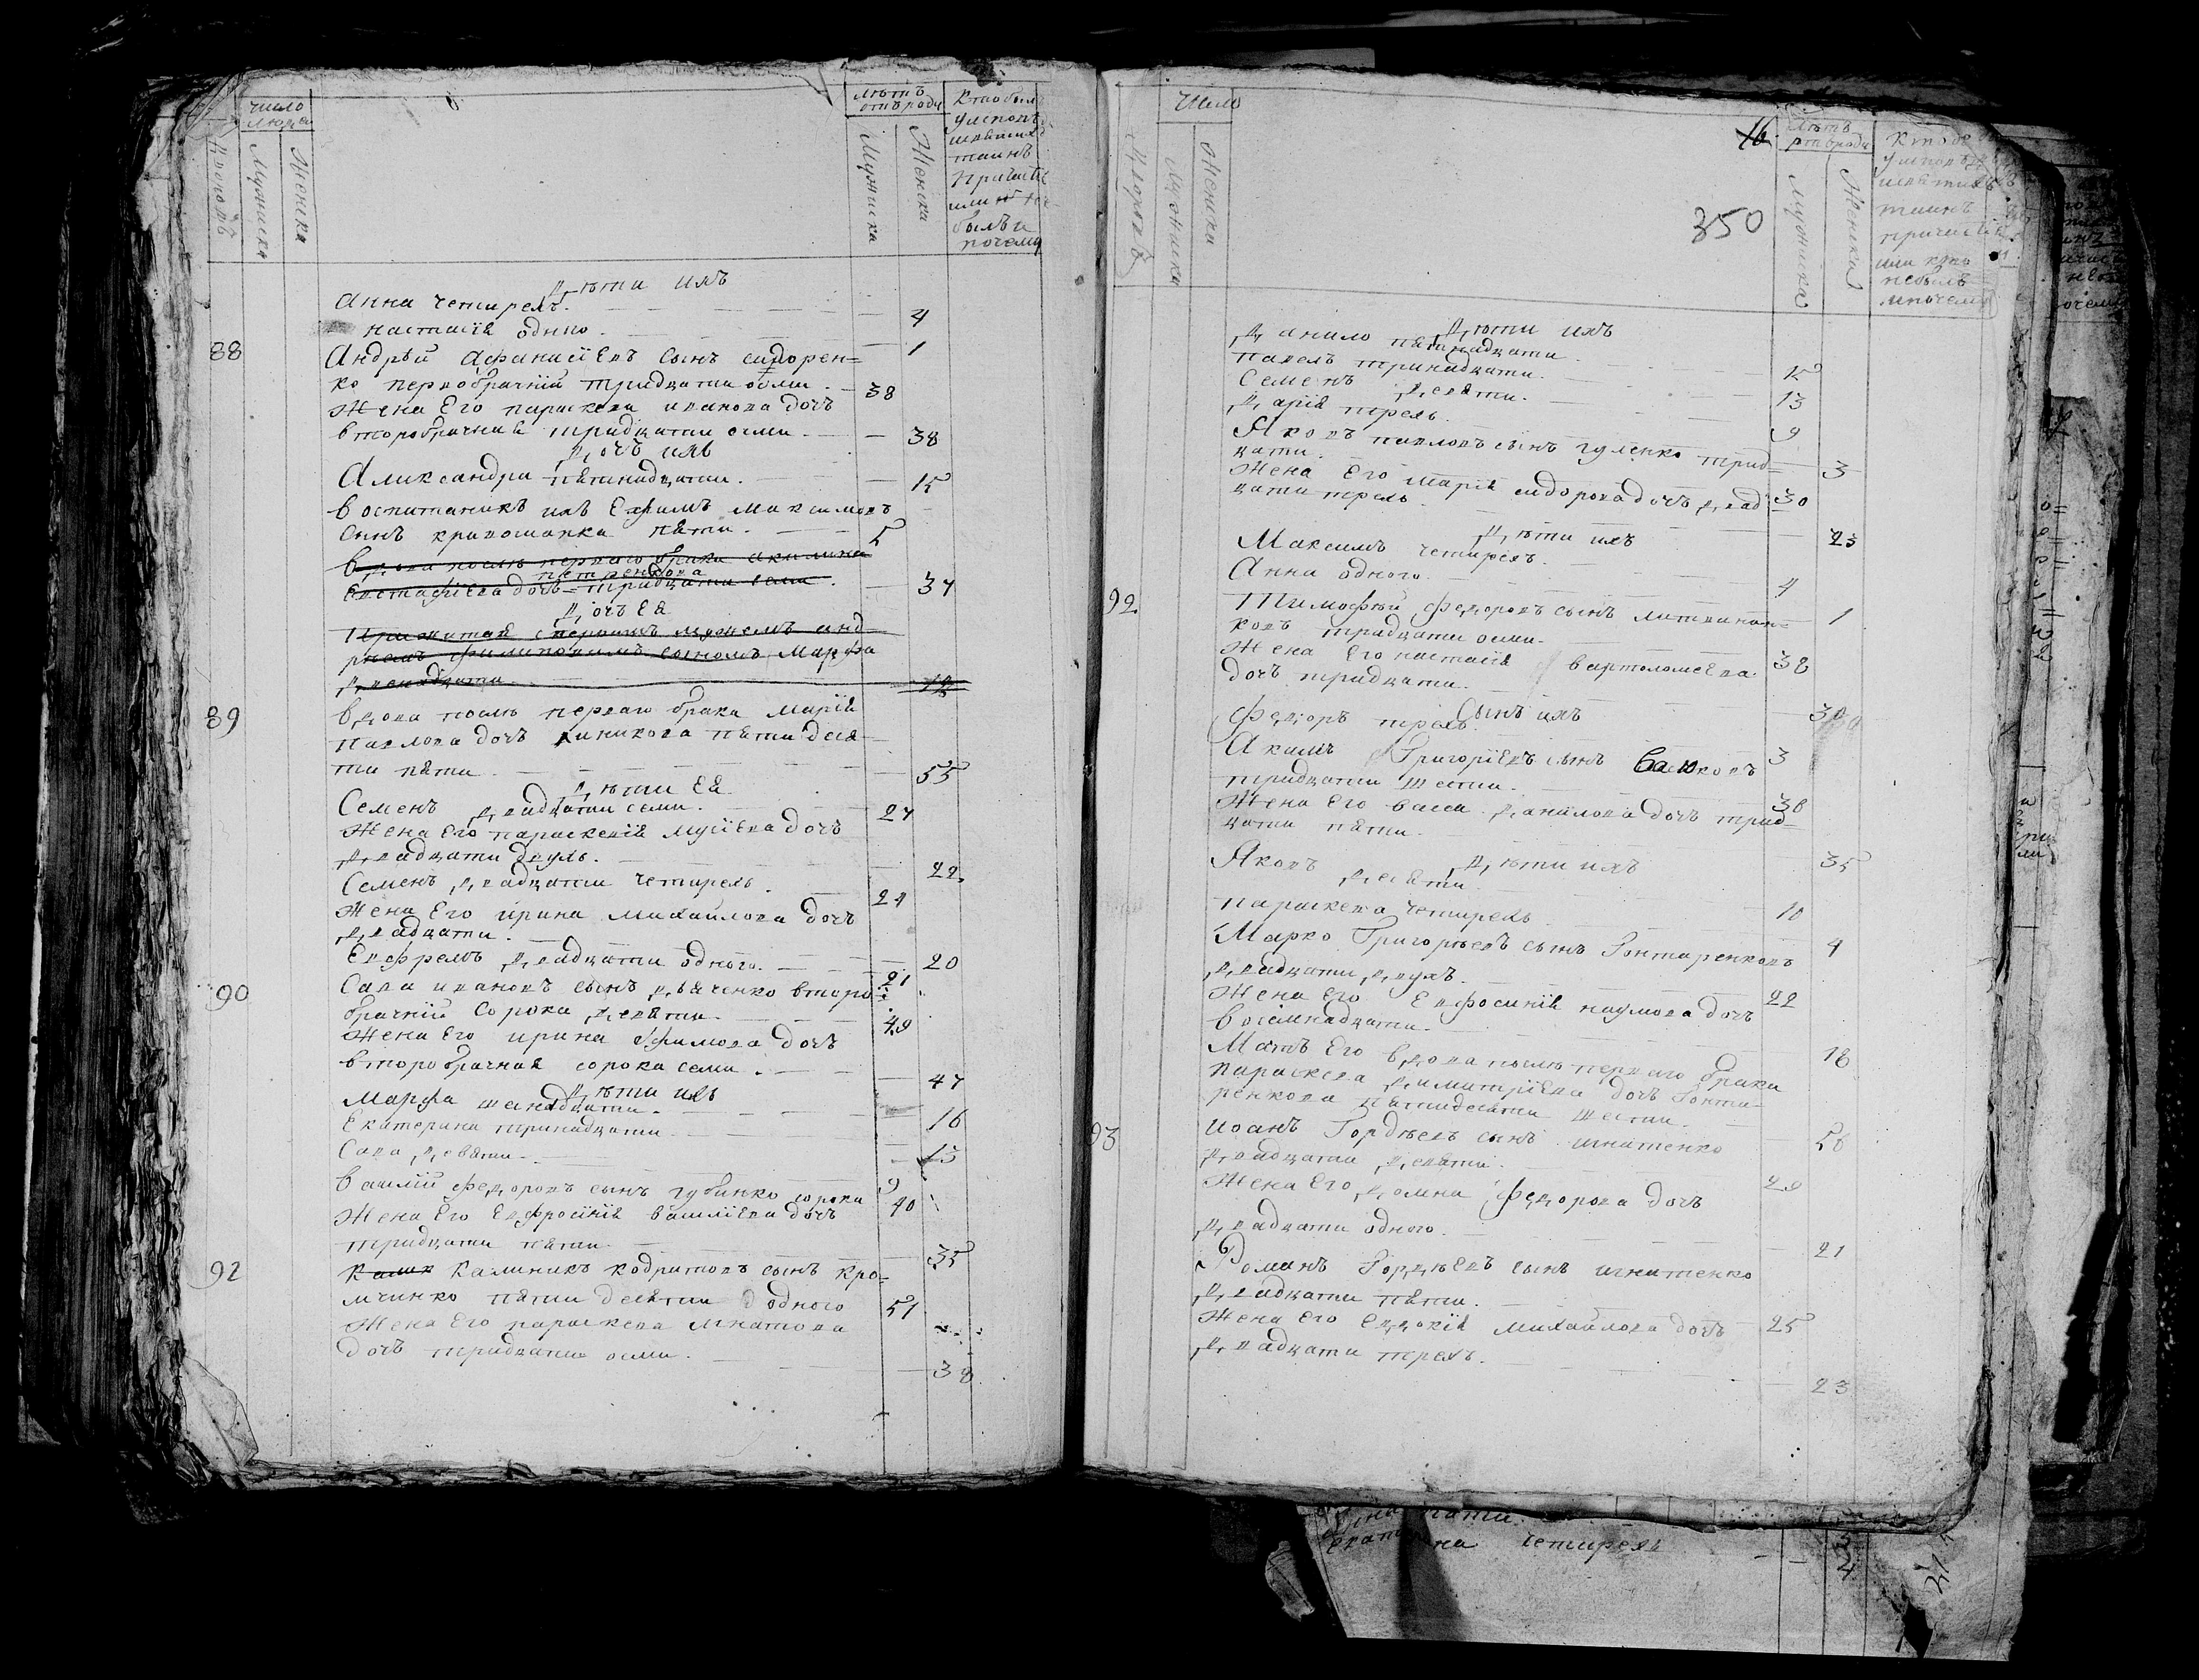 число людей
Дворовъ
Мужиска
Женска
лѣтъ отъ роду
Мужиска
Женска
Кто былъ
у исповѣди
святыхъ
таинъ
причастія
или кто не
былъ и
почему
Дѣти ихъ
Анна четирехъ. 4
настасія одного. 1
88 Андрѣй афанасіевъ сынъ сидорен=
ко первобрачній тридцати осми. 38
Жена Его параскева иванова дочь
второбрачная тридцати осми. 38
Дочь ихъ
Александра пятнадцати. 15
воспитаникъ ихъ Ефимъ максимовъ
сынъ кривошапка пяти. 5
Вдова послѣ перваго брака акилина
петренкова
Евстафіева дочь тридцати семи. 37
Дочь Ея
Прижитая с первимъ мужемъ анд
рѣемъ филиповимъ сыномъ Марфа
Двенадцати 12
89 Вдова послѣ перваго брака марія
павлова дочь аникова пятидеся
ти пяти. 55
Дѣти Ея
Семенъ Двадцати семи. 27
Жена Его параскевія мусіева дочь
Двадцати двухъ. 22
Семенъ Двадцати четирехъ. 24
Жена Его ирина михайлова дочь
Двадцати. 20
Евфремъ Двадцати одного. 21
90 Сава ивановъ сынъ Дьяченко второ
брачній сорока Девяти. 49
Жена Его ирина Ефимова дочь
второбрачная сорока семи. 47
Дѣти ихъ
Марфа шеснадцати. 16
Екатерина тринадцати. 13
Сава Девяти. 9
василій федоровъ сынъ губинко сорока 40
Жена Его Евфросинія василіева дочь
тридцати пяти. 35
92 Калиникъ кодратовъ сынъ кро=
мчинко пяти десяти одного 51
Жена Его параскева игнатова
дочь тридцати осми. 38
Число
Дворовъ
Мужиска
Женска
16
350
Лѣтъ
отъ роду
Мужиска
Женска
Кто былъ
у исповѣди
святихъ
таинъ
причастія
или кто
не былъ
и почему
Дѣти ихъ
Данило пятнадцати. 15
павелъ тринадцати. 13
Семенъ Девяти. 9
Дарія трехъ. 3
Яковъ павловъ сынъ гуленко трид=
цати. 30
Жена Его марія сидорова дочь двад
цати трехъ. 23
Дѣти ихъ
Максимъ четирехъ. 4
Анна одного. 1
92 Тимофѣй федоровъ сынъ литвинен=
ковъ тридцати осми. 38
Жена Его настасія вартоломеева
дочь тридцати. 30
Сынъ ихъ
Федоръ трехъ. 3
Акимъ Григоріевъ сынъ
тридцати шести. 36
Жена Его васса Данилова дочь трид=
цати пяти. 35
Дѣти ихъ
Яковъ Десяти. 10
параскева четирехъ 4
Марко Григорьевъ сынъ Гонтаренковъ
Двадцати Двухъ. 22
Жена Его Евфросинія наумова дочь
восемнадцати. 18
Мать Его вдова послѣ перваго брака
параскева Димитріева дочь Гонта
ренкова пятидесяти шести. 56
93 иоанъ Гордѣевъ сынъ игнатенко
Двадцати Девяти. 29
Жена Его Домна федорова дочь
Двадцати одного. 21
Романъ Гордѣевъ сынъ игнатенко
Двадцати пяти. 25
Жена Его Евдокія михайлова дочь
Двадцати трехъ. 23
пяти.
четирехъ